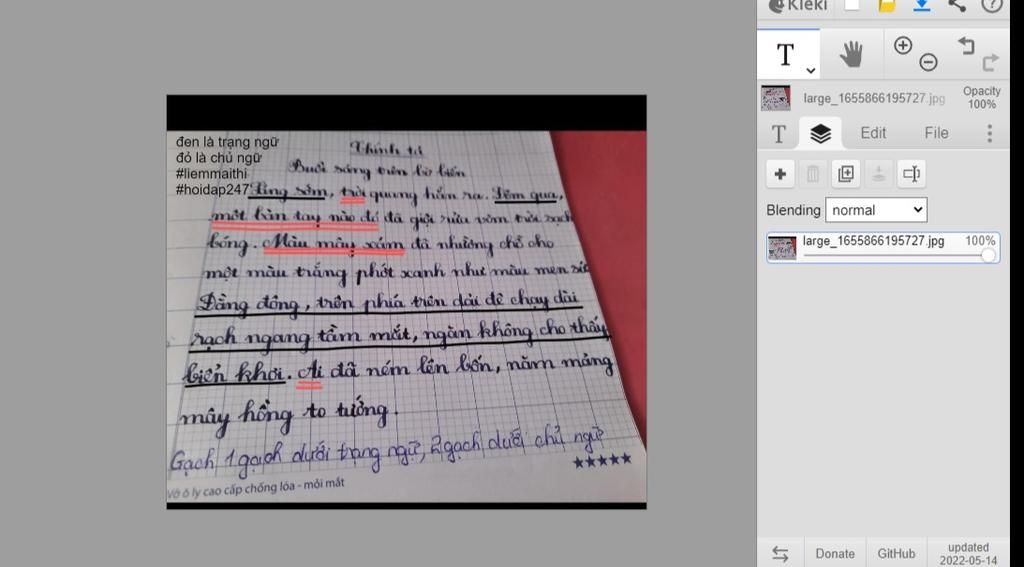 Kleki
large_1655866195727.jpg
Opacity
100%
T
Edit
File
Blending
normal
large_1655866195727.jpg
100%
đen là trạng ngữ
đỏ là chủ ngữ
#liemmaithi
#hoidap247
Chính tả
Buổi sáng trên bờ biển
Sáng sớm, trời quang hẳn ra. Đêm qua,
một bàn tay nào đó đã giội rửa vòm trời sạch
bóng. Màu mây xám đã nhường chỗ cho
một màu trắng phớt xanh như màu men sứ
Đằng đông, trên phía trên dải đê chạy dài
rạch ngang tầm mắt, ngăn không cho thấy
biển khơi. Ai đã ném lên bốn, năm mảng
mây hồng to tướng.
Gạch 1 gạch dưới trạng ngữ, 2 gạch dưới chủ ngữ
Vở ô ly cao cấp chống lóa - mỏi mắt
Donate
GitHub
updated
2022-05-14